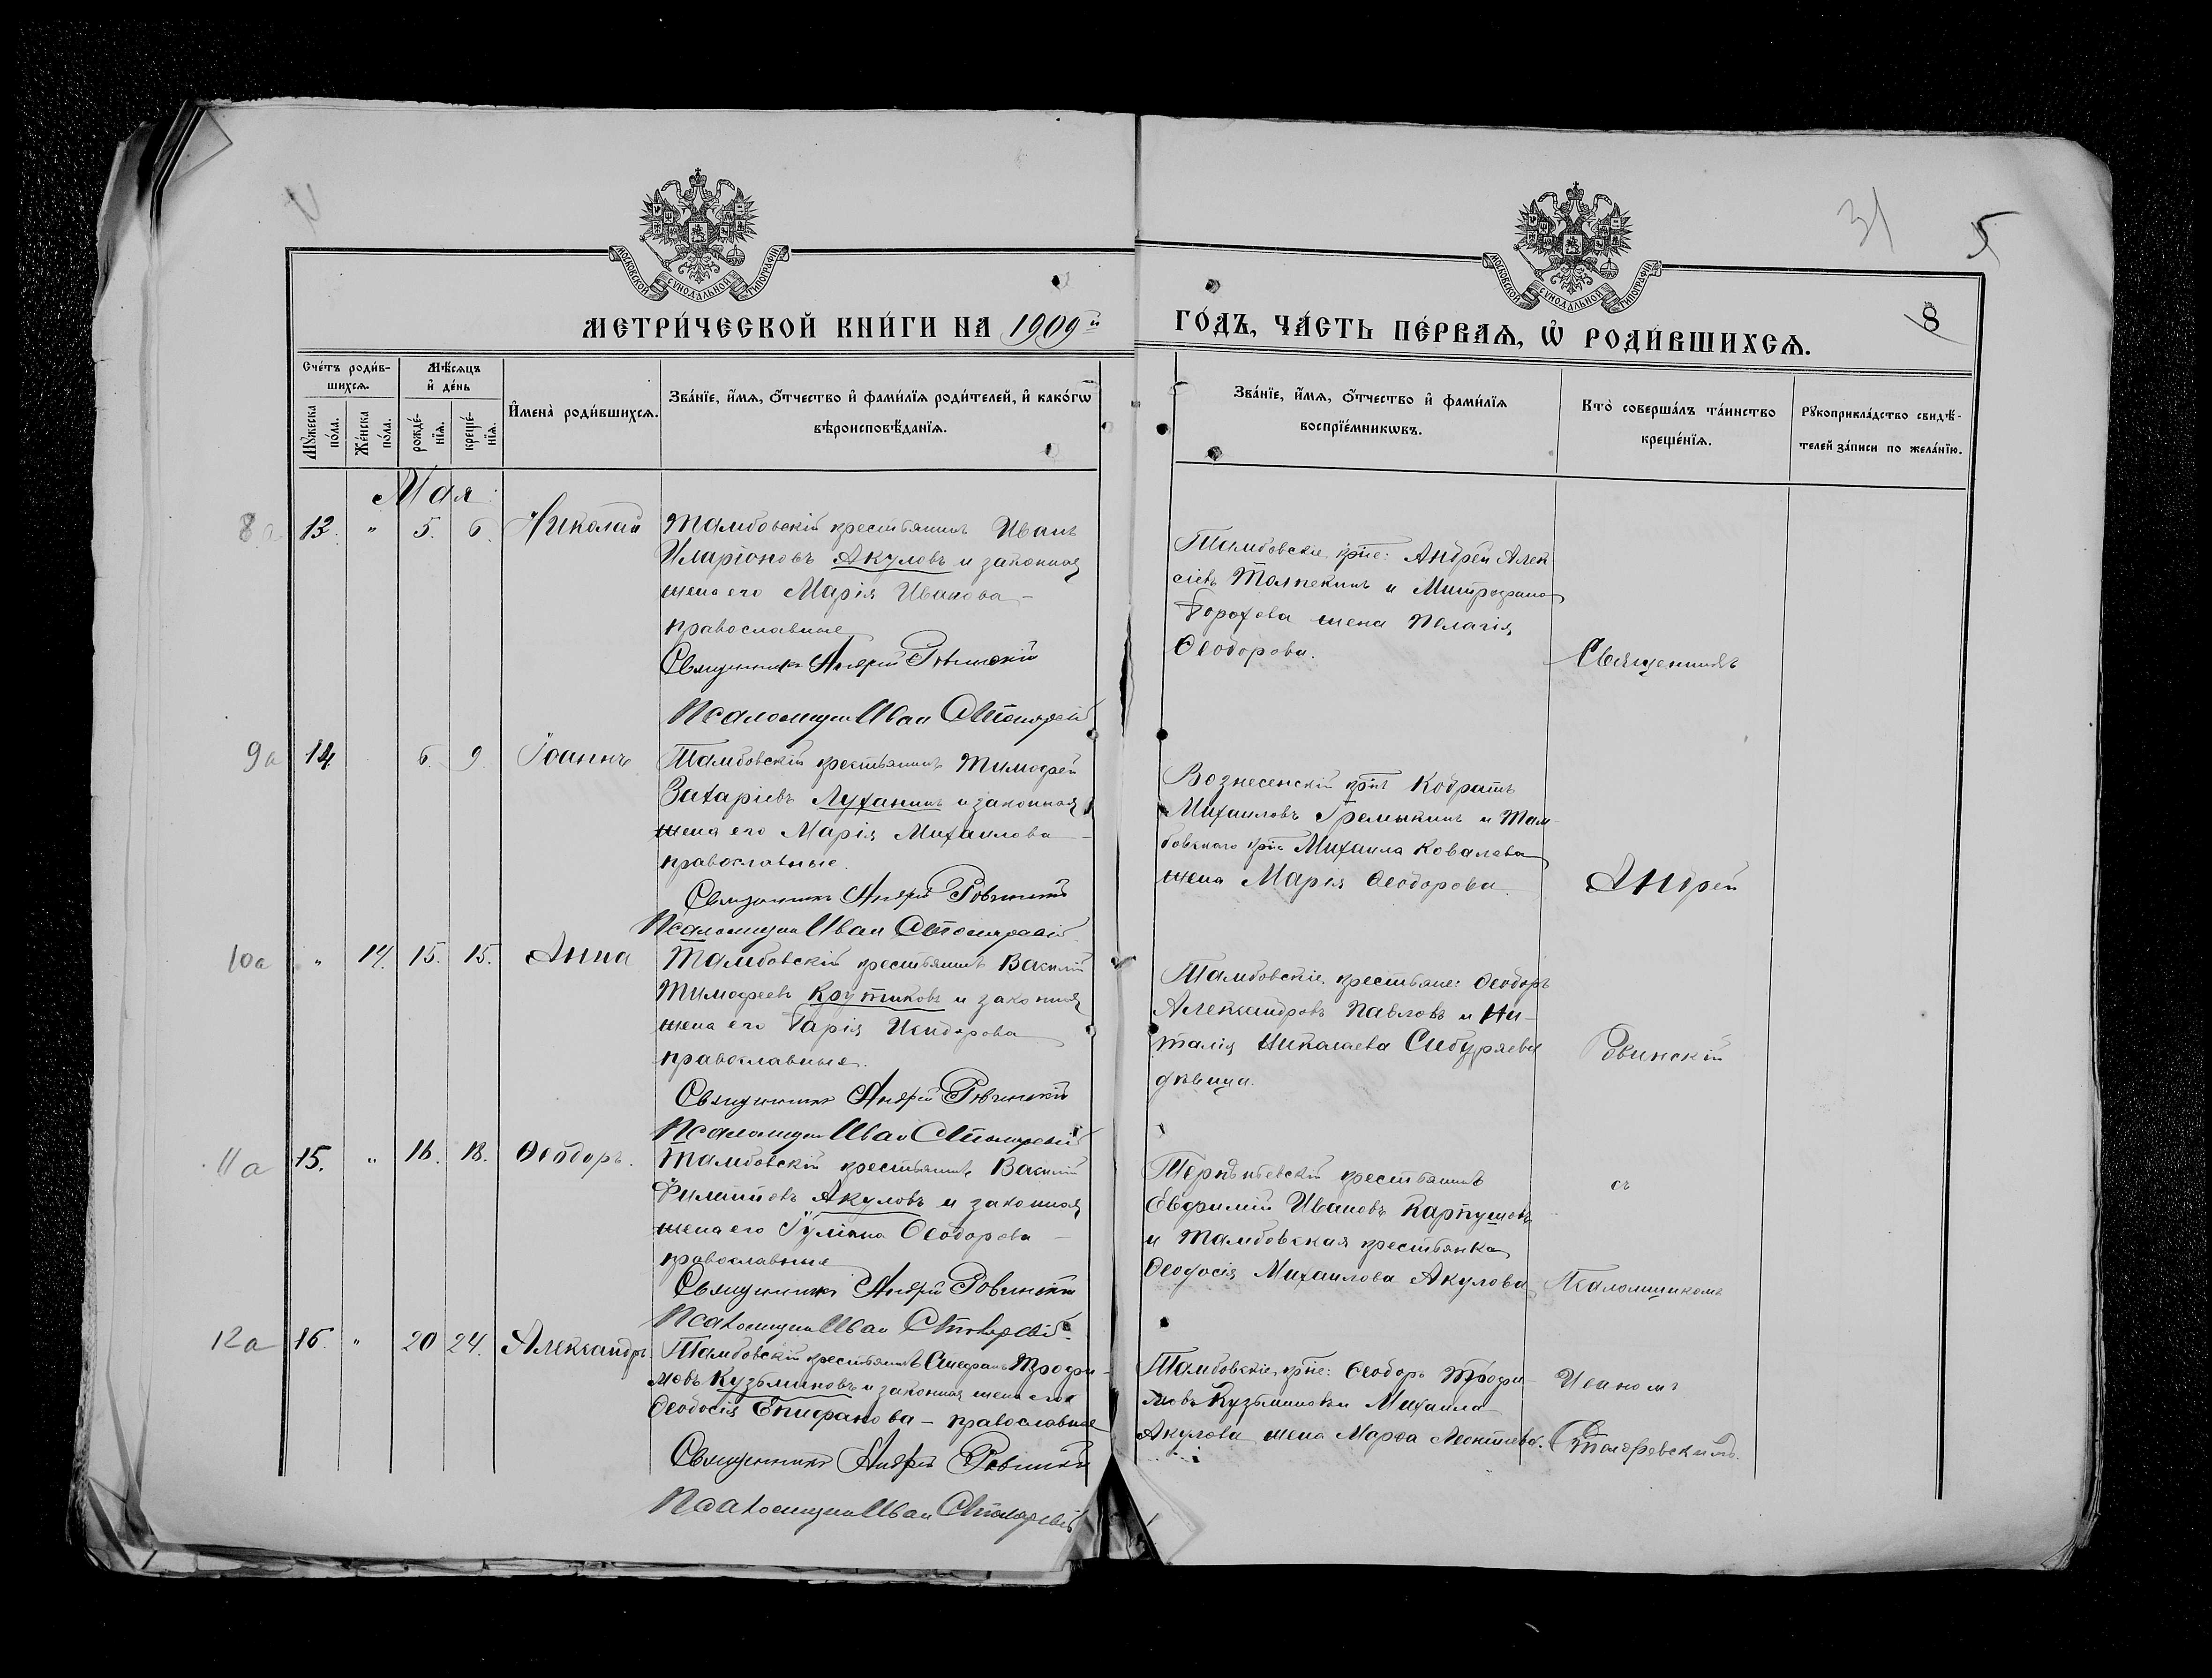 МОСКОВСКОЙ СУНОДАЛЬНОЙ ТИПОГРАФІИ
МОСКОВСКОЙ СУНОДАЛЬНОЙ ТИПОГРАФІИ
31
5
8
МЕТРИ́ЧЕСКОЙ КНИ́ГИ НА 1909й
ГО́ДЪ, ЧА́СТЬ ПЕ́РВАѦ, Ѡ҆ РОДИ́ВШИХСѦ.
Сче́тъ роди́в-
шихсѧ.
Мѣсѧцъ
и҆ де́нь
Мꙋ́жеска
по́ла.
Же́нска
по́ла.
рожде́-
нїѧ.
креще́-
нїѧ.
И҆мена̀ роди́вшихсѧ.
Зва́нїе, и҆́мѧ, ѻ҆́тчество и҆ фами́лїѧ роди́телей, и҆ како́гѡ
вѣроисповѣ́данїѧ.
Зва́нїе, и҆́мѧ, ѻ҆́тчество и҆ фами́лїѧ
воспрїе́мникѡвъ.
Кто̀ соверша́лъ та́инство
креще́нїѧ.
Рꙋкоприкла́дство свидѣ́-
телей за́писи по жела́нїю.
Мая
8а 13. " 5. 6. Николай
Тамбовскій крестьянинъ Иванъ
Иларіоновъ Акуловъ и законная
жена его Марія Иванова –
православные
Священникъ Андрей Ровинскій
Псаломщикъ Иван
Тамбовскіе кр̃не: Андрей Алек
сіевъ Толпекинъ и Митрофана
жена Пелагія
Ѳеодорова.
Священникъ
9а 14 6. 9. Іоаннъ
Тамбовскій крестьянинъ Тимофей
Захаріевъ Луханинъ и законная
жена его Марія Михаилова –
православные.
Священникъ Андрей Ровинскій
Псаломщикъ Иван
Вознесенскій Кодратъ
Михаиловъ Гремыкинъ и Там-
бовскаго Михаила Ковалева
жена Марія Ѳеодорова.
Андрей
10а " 14. 15. 15. Анна
Тамбовскій крестьянинъ Василій
Тимофеевъ Крутиковъ и законная
жена его Дарія Исидорова
православные.
Священникъ Андрей Ровинскій
Псаломщикъ Иван
Тамбовскіе крестьяне: Ѳеодоръ
Александровъ Павловъ и На-
талія Николаева
дѣвица.
Ровинскій
11а 15. " 16. 18. Ѳеодоръ.
Тамбовскій крестьянинъ Василій
Филиповъ Акуловъ и законная
жена его Іуліана Ѳеодорова –
православные
Священникъ Андрей Ровинскій
Псаломщикъ Иван
крестьянинъ
Евфимій Ивановъ
и Тамбовская крестьянка
Ѳеодосія Михаилова Акулова
съ
Псаломщикомъ
12а 16. " 20 24. Александръ.
Тамбовскій крестьянинъ Стефанъ Трофи-
мовъ Кузьминовъ и законная жена его
Ѳеодосія Епифанова – православные
Священникъ Андрей Ровинскій
Псаломщикъ Иван
Тамбовскіе кр̃не: Ѳеодоръ Трофи-
мовъ Кузьминовъ и Михаила
Акулова жена Марѳа Леонтіева.
Иваномъ